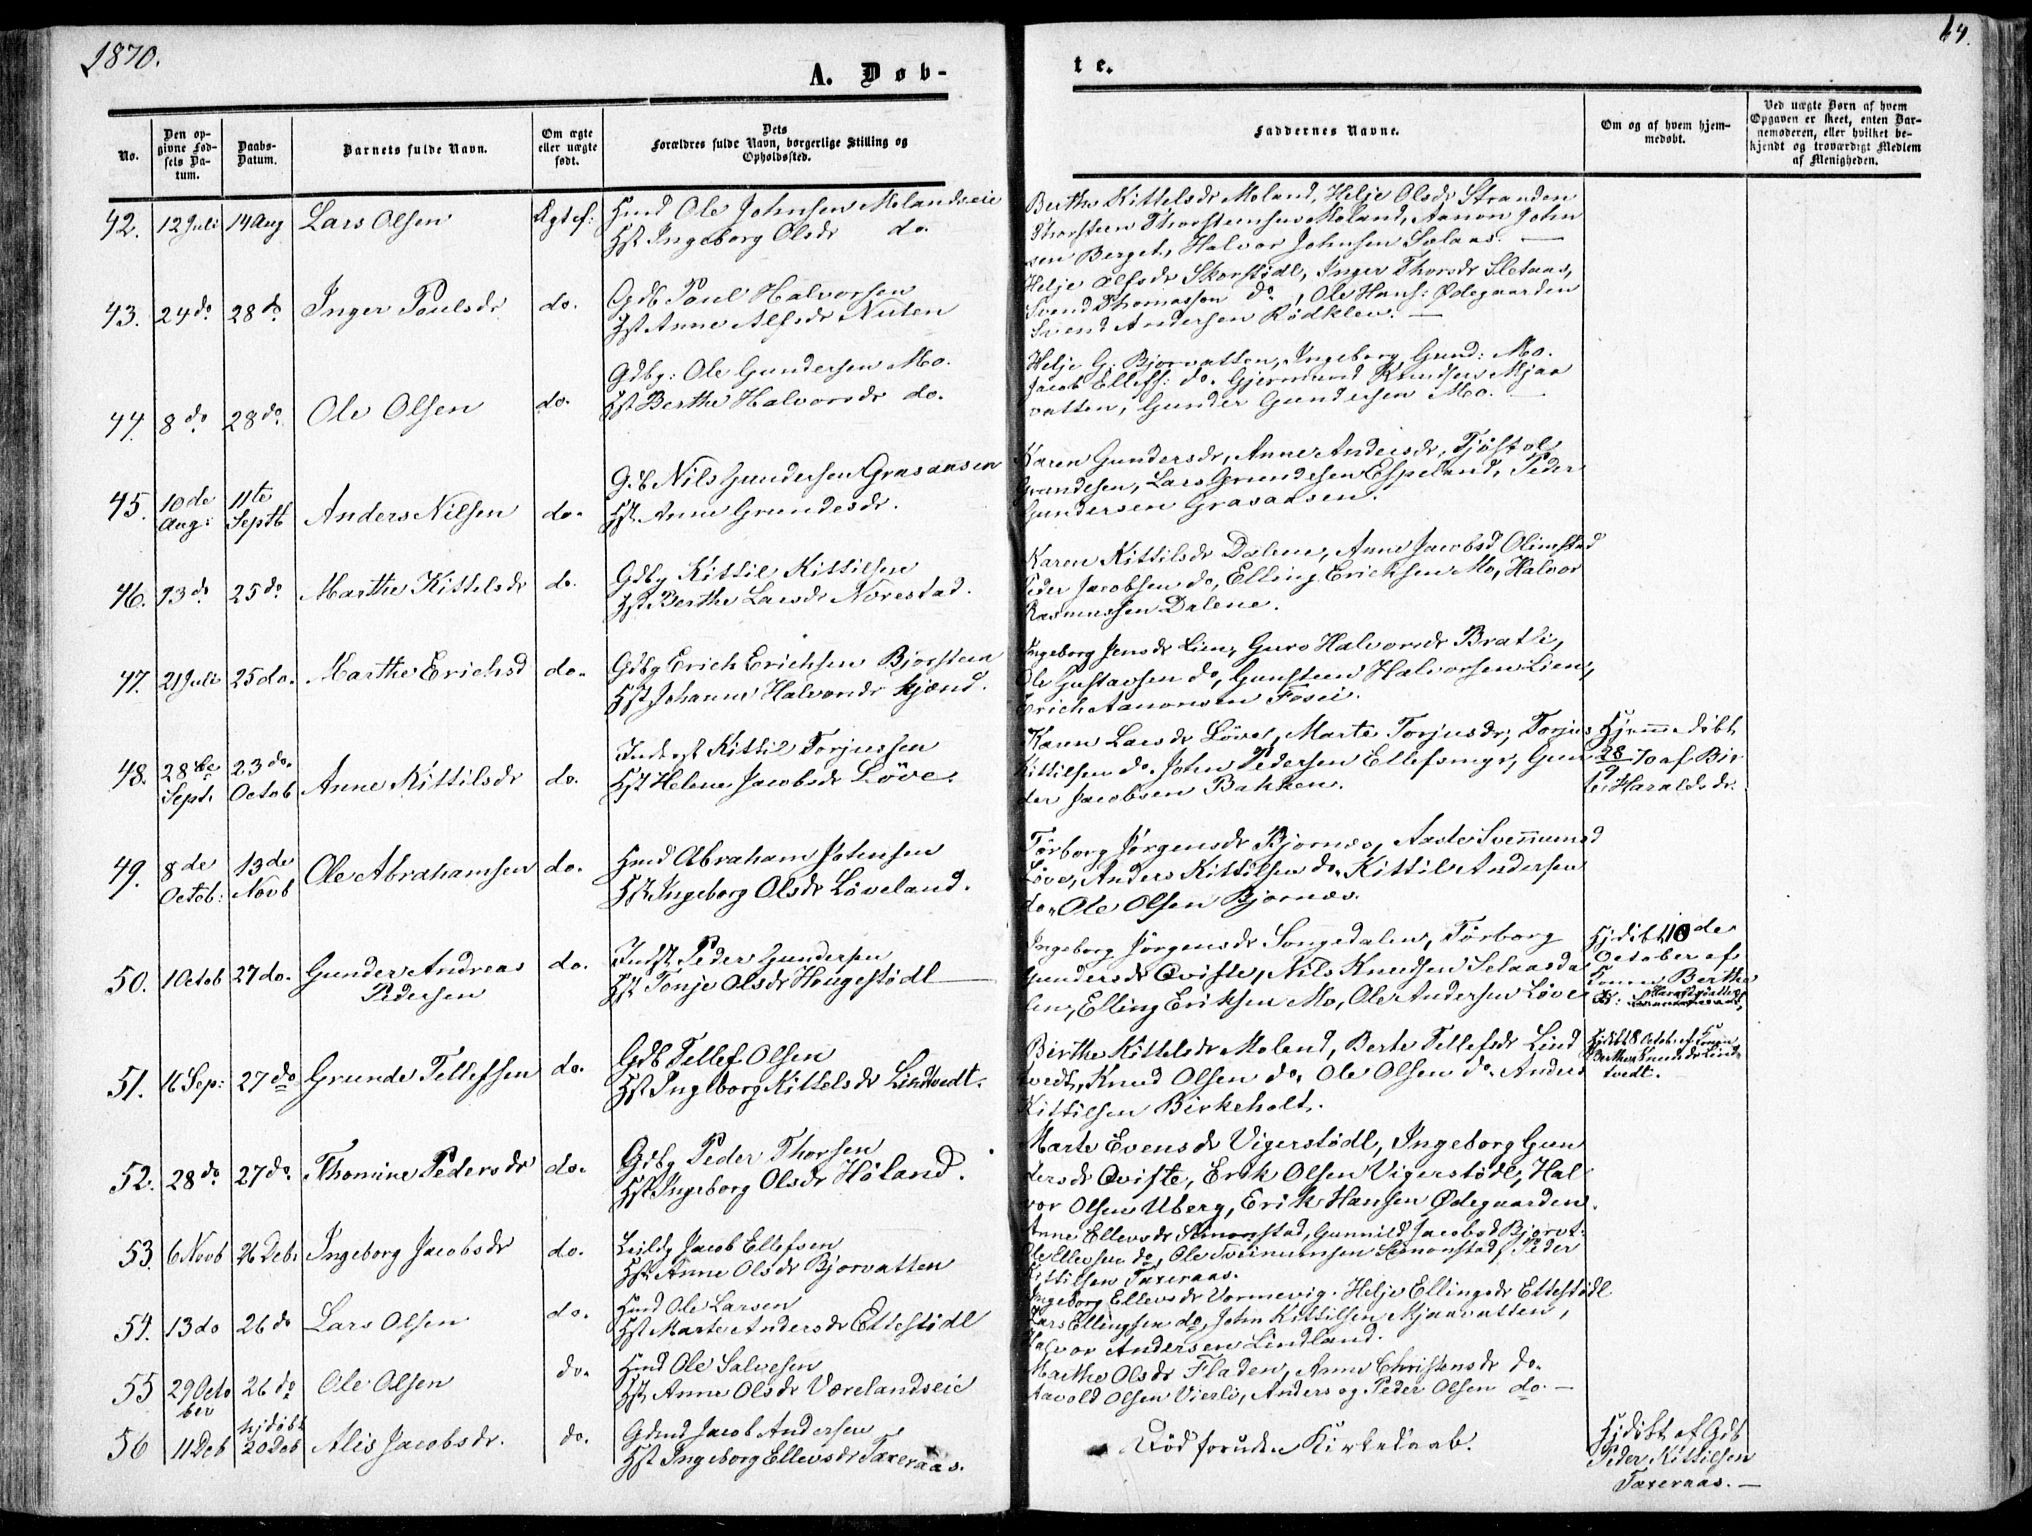 1870.
64.
A. Døb-
te.
No.
Den op-
givne Fød-
sels Da-
tum.
Daabs-
Datum.
Barnets fulde Navn.
Om ægte
eller uægte
født.
Dets
Forældres fulde Navn, borgerlige Stilling og
Opholdssted.
Faddernes Navne.
Om og af hvem hjem-
medøbt.
Ved uægte Børn af hvem
Opgaven er skeet, enten Bar-
nemoderen, eller hvilket be-
kjendt og troværdigt Medlem
af Menigheden.
42. 12 Juli 14 Aug Lars Olsen Ægtef: Hmd Ole Johnsen Molandseie
Hst Ingeborg Olsdr do.
Berthe Kittelsdr Moland, Helje Olsdr Stranden
Thorsteen Thorsteensen Moland, Aanon John
sen Berget, Halvor Johnsen Sølaas. —
43. 24 do 28 do Inger Poulsdr do. Ggdb Poul Halvorsen
Hst Anne Alfsdr Nuten
Helje Olfsdr Skorstødl, Inger Thorsdr Sletaas,
Svend Thomassen do, Ole Hans: Ødegaarden
Svend Andersen Rødklev. —
44. 8 do 28 do Ole Olsen do. Gdbg: Ole Gundersen Mo.
Hst Berthe Halvorsdr do.
Helje G. Bjorvatten, Ingeborg Gund: Mo.
Jacob Ellefs: do. Gjermund Knudsen Mjaa
vatten, Gunder Gundersen Mo. —
45. 10 de Aug: 11te Septb Anders Nilsen do. Gdb Nils Gundersen Grasaasen
Hst Anne Grundesdr.
Karen Gundersdr, Anne Andersdr, Tjøstol
Grundesen, Lars Grundesen Espeland, Peder
Gundersen Grasaasen.
46. 13 do 25 do Marthe Kittelsdr do. Gdbg Kittil Kittilsen
Hst Berthe Larsdr Norestad.
Karen Kittilsdr Dalene, Anne Jacobsd Olimstad
Peder Jacobsen do, Elling Ericksen Mo, Halvor
Rasmussen Dalene.
47. 21 Juli 25 do. Marthe Erichsd do. Gdbg Erich Erichsen Bjorsteen
Hst Johanne Halvorsdr kjend.
Ingeborg Jensdr Lien, Guro Halvorsdr Bratli,
Ole Gustavsen do, Gunsteen Halvorsen Lien,
Erich Aanonsen Fosei.
48. 28 de Sept. 23 do. Octob Anne Kittilsdr do. Inderst Kittil Torjussen
Hst Helene Jacobsdr Løve.
Karen Larsdr Løve, Marte Torjusdr, Torjus
Kittilsen do. John Pedersen Ellefsmyr, Gun
der Jacobsen Bakken.
Hjemmedøbt
28/9 70 af Bir
te Haraldsdr.
49. 8 de Octob: 13 de Novb Ole Abrahamsen do. Hmd Abraham Johnsen
Hst Ingeborg Olsdr Løveland.
Torborg Jørgensdr Bjornes, Aaste Svennumsd
Løve, Anders Kittilsen do. Kittil Andersen
do. Ole Olsen Bjornes.
50. 1 Octob 27 do. Gunder Andreas
Pedersen do. Indst. Peder Gundersen
Hst Tonje Olsdr Hougestødl —
Ingeborg Jørgensdr Songedalen, Torborg
Gundersdr Qviste, Nils Knudsen Selaasda
len, Elling Eriksen Mo, Ole Andersen Løve
Hjdøbt 10 de
October af
Konen Berthe
51. 16 Sep: 27 do Grunde Tellefsen do. Gdb Tellef Olsen
Hst Ingeborg Kittelsdr Lindtvedt.
Birthe Kittelsdr Moland, Berte Tellefsdr Lind
tvedt, Knud Olsen do. Ole Olsen do. Anders
Kittilsen Birkeholt.
Hjdøbt 8 Octob. af Konen
Berthe Knudsdr Lind
tvedt.
52. 28 do 27 do. Thomine Pedersdr do. Gdbg Peder Thorsen
Hst Ingeborg Olsdr Høland.
Marte Evensdr Vigerstødl, Ingeborg Gun
dersdr Qviste, Erik Olsen Vigerstødl, Hal
vor Olsen Uberg, Erik Hansen Ødegaarden.
53. 6 Novb 26 Debr Ingeborg Jacobsdr do. Leildg Jacob Ellefsen
Hst Anne Olsdr Bjorvatten
Anne Ellevsdr Simonstad, Gunnild Jacobsd Bjorvt:
Ole Ellevsen do, Ole Sveinungsen Simonstad, Peder
Kittilsen Taxeraas.
54. 13 do 26 do Lars Olsen do. Hmd Ole Larsen
Hst Marte Andersdr Ettestødl
Ingeborg Ellevsdr Vormevig. Helje Ellingsdr Ettestødl
Lars Ellingsen do, John Kittilsen Mjaavatten,
Halvor Andersen Lindland.
55 29 Octo
ber 26 do Ole Olsen do. Hmd Ole Salvesen
Hst Anne Olsdr Værelandseie
Marthe Olsdr Fladen, Anne Christensdr do.
Aavold Olsen Vierli, Anders og Peder Olsen do. —
56 11 Deb hjdøbt
20 Deb Alis Jacobsdr. do. Gdmd Jacob Andersen
Hst Ingeborg Ellevsdr Taxeraas.
Død foruden Kirkedaab.
Hjdøbt af Gdb
Peder Kittilsen
Taxeraas. —